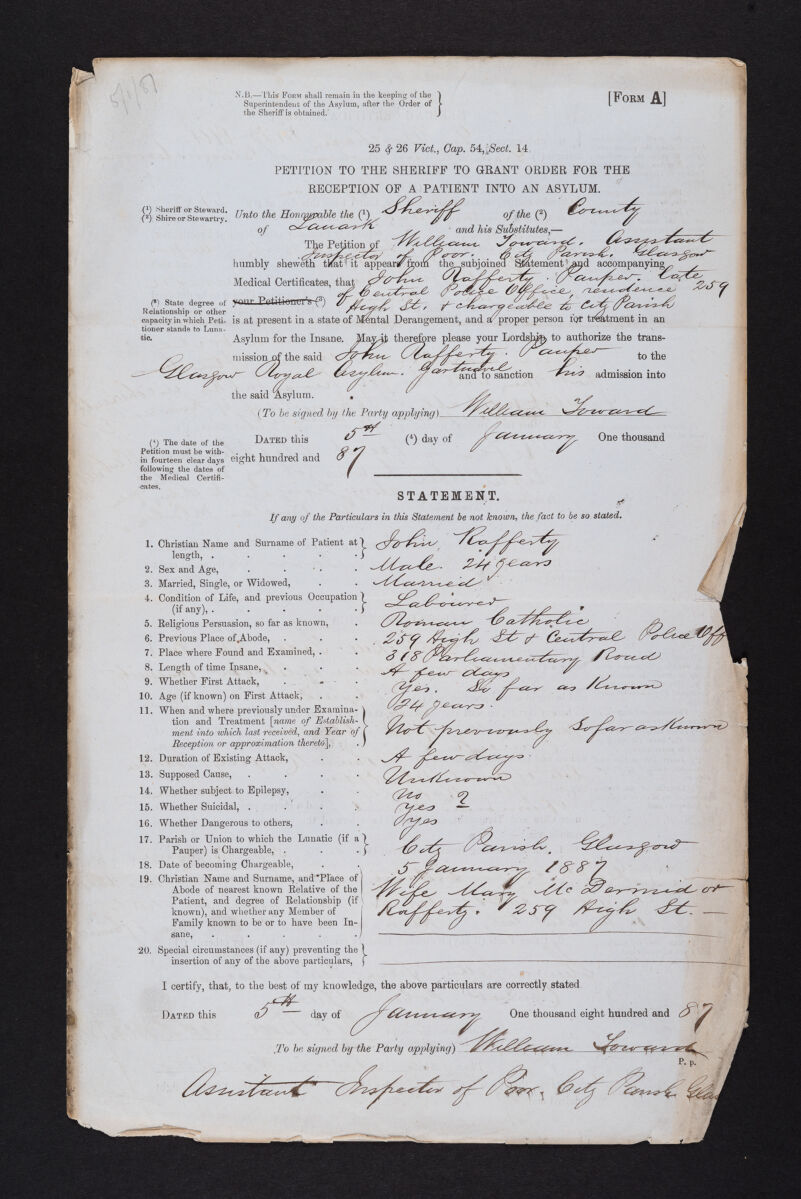 5/1/87
N.B.—This Form shall remain in the keeping of the
Superintendent of the Asylum, after the Order of
the Sheriff is obtained.
[Form A]
25 & 26 Vict., Cap. 54, Sect. 14
PETITION TO THE SHERIFF TO GRANT ORDER FOR THE
RECEPTION OF A PATIENT INTO AN ASYLUM.
(1) Sheriff or Steward.
(2) Shire or Stewartry.
Unto the Honourable the (1) Sheriff of the (2) County
of Lanark and his Substitutes,—
The Petition of William Toward. Assistant
Inspector of Poor. City Parish. Glasgow
humbly sheweth that it appears from the subjoined Statement and accompanying
Medical Certificates, that John Rafferty. Pauper. late
of Central Police Office, residence 259
(3) State degree of
Relationship or other
capacity in which Peti-
tioner stands to Luna-
tic.
your Petitioner's (3) High St. & chargeable to City Parish
is at present in a state of Mental Derangement, and a proper person for treatment in an
Asylum for the Insane. May it therefore please your Lordship to authorize the trans-
mission of the said John Rafferty. Pauper to the
Glasgow Royal Asylum. Gartnavel and to sanction his admission into
the said Asylum.
(To be signed by the Party applying) William Toward
(4) The date of the
Petition must be with-
in fourteen clear days
following the dates of
the Medical Certifi-
cates.
Dated this 5th (4) day of January One thousand
eight hundred and 87
STATEMENT.
If any of the Particulars in this Statement be not known, the fact to be so stated.
1. Christian Name and Surname of Patient at
length, . . . . . John Rafferty
2. Sex and Age, . . . . Male. 24 years
3. Married, Single, or Widowed, . . Married
4. Condition of Life, and previous Occupation
(if any), . . . . . Labourer
5. Religious Persuasion, so far as known, . Roman Catholic
6. Previous Place of Abode, . . . 259 High St & Central Police Off
7. Place where Found and Examined, . . 318 Parliamentary Road
8. Length of time Insane, . . . A few days
9. Whether First Attack, . . . Yes. So far as Known
10. Age (if known) on First Attack, . . 24 years.
11. When and where previously under Examina-
tion and Treatment [name of Establish-
ment into which last received, and Year of
Reception or approximation thereto], . Not previously so far as Known
12. Duration of Existing Attack, . . A few days
13. Supposed Cause, . . . . Unknown
14. Whether subject to Epilepsy, . . No
15. Whether Suicidal, . . . . Yes ?
16. Whether Dangerous to others, . . Yes
17. Parish or Union to which the Lunatic (if a
Pauper) is Chargeable, . . . City Parish. Glasgow
18. Date of becoming Chargeable, . . 5 January 1887
19. Christian Name and Surname, and Place of
Abode of nearest known Relative of the
Patient, and degree of Relationship (if
known), and whether any Member of
Family known to be or to have been In-
sane, . . . . .
Wife Mary McDermid or
Rafferty. 259 High St. —
20. Special circumstances (if any) preventing the
insertion of any of the above particulars,
I certify, that, to the best of my knowledge, the above particulars are correctly stated
Dated this 5th day of January One thousand eight hundred and 87
To be signed by the Party applying) William Toward
P. p.
Assistant Inspector of Poor, City Parish Glas